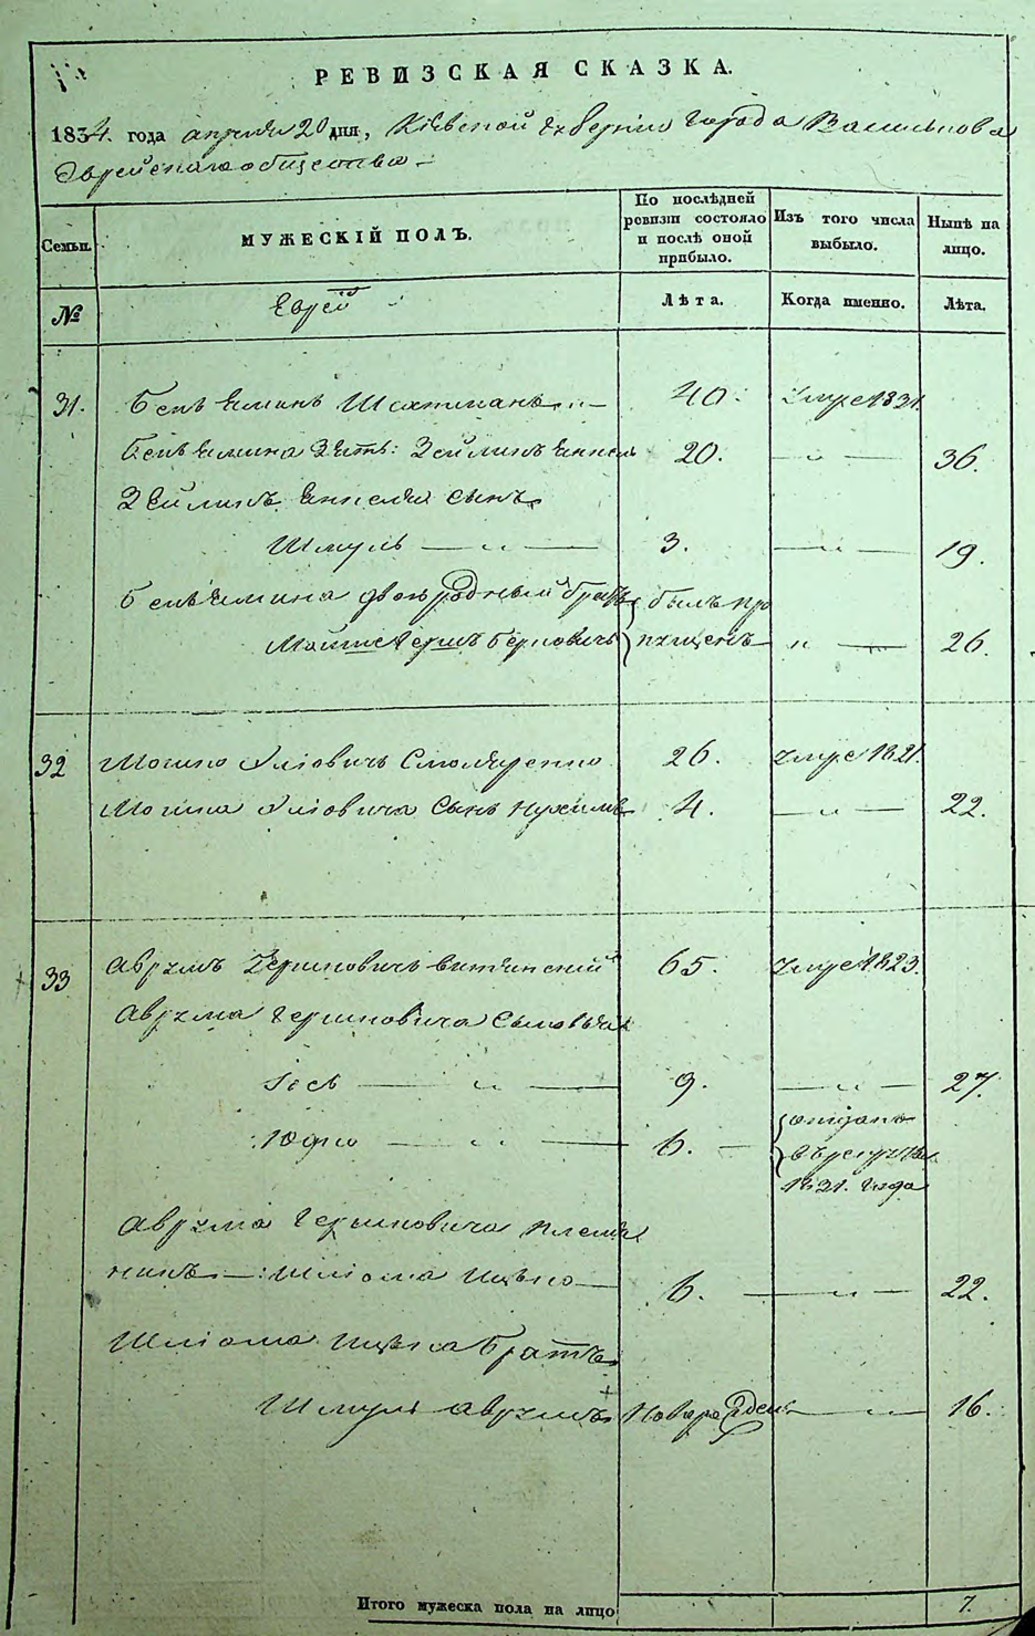 РЕВИЗСКАЯ СКАЗКА.
1834. года апреля 20 дня, Кіевской Губерніи города Василькова
Еврейскаго общества –
Семьи.
МУЖЕСКІЙ ПОЛЪ.
По послѣдней ревизіи состояло и послѣ оной прибыло.
Изъ того числа выбыло.
Нынѣ на лицо.
№
Еврей
Лѣта.
Когда именно.
Лѣта.
31. Беньяминъ Шехтманъ 40. умре 1831.
Беньямина Зять: Зейликъ 20. — „ — 36.
Зейликъ сынъ
Шмуль — „ — 3. — „ — 19.
Беньямина двоюродный братъ былъ про
Мошко Гершъ Берковичъ пущенъ „ — 26.
32 Мошко Смоляренко 26. умре 1821.
Мошка Сынъ Нухимъ 4. — „ — 22.
33 Аврумъ Гершковичъ 65. умре 1823.
Аврума Гершковича Сыновья
Іось — „ — 9. — „ — 27.
Юдко — „ — 6. — отданъ
въ рекруты
1831. года
Аврума Гершковича племян
никъ — : Шліома Ицько — 6. — „ — 22.
Шліома Ицька Братъ
Шмуль Аврумъ Новорожден — „ — 16.
Итого мужеска пола на лицо 7.